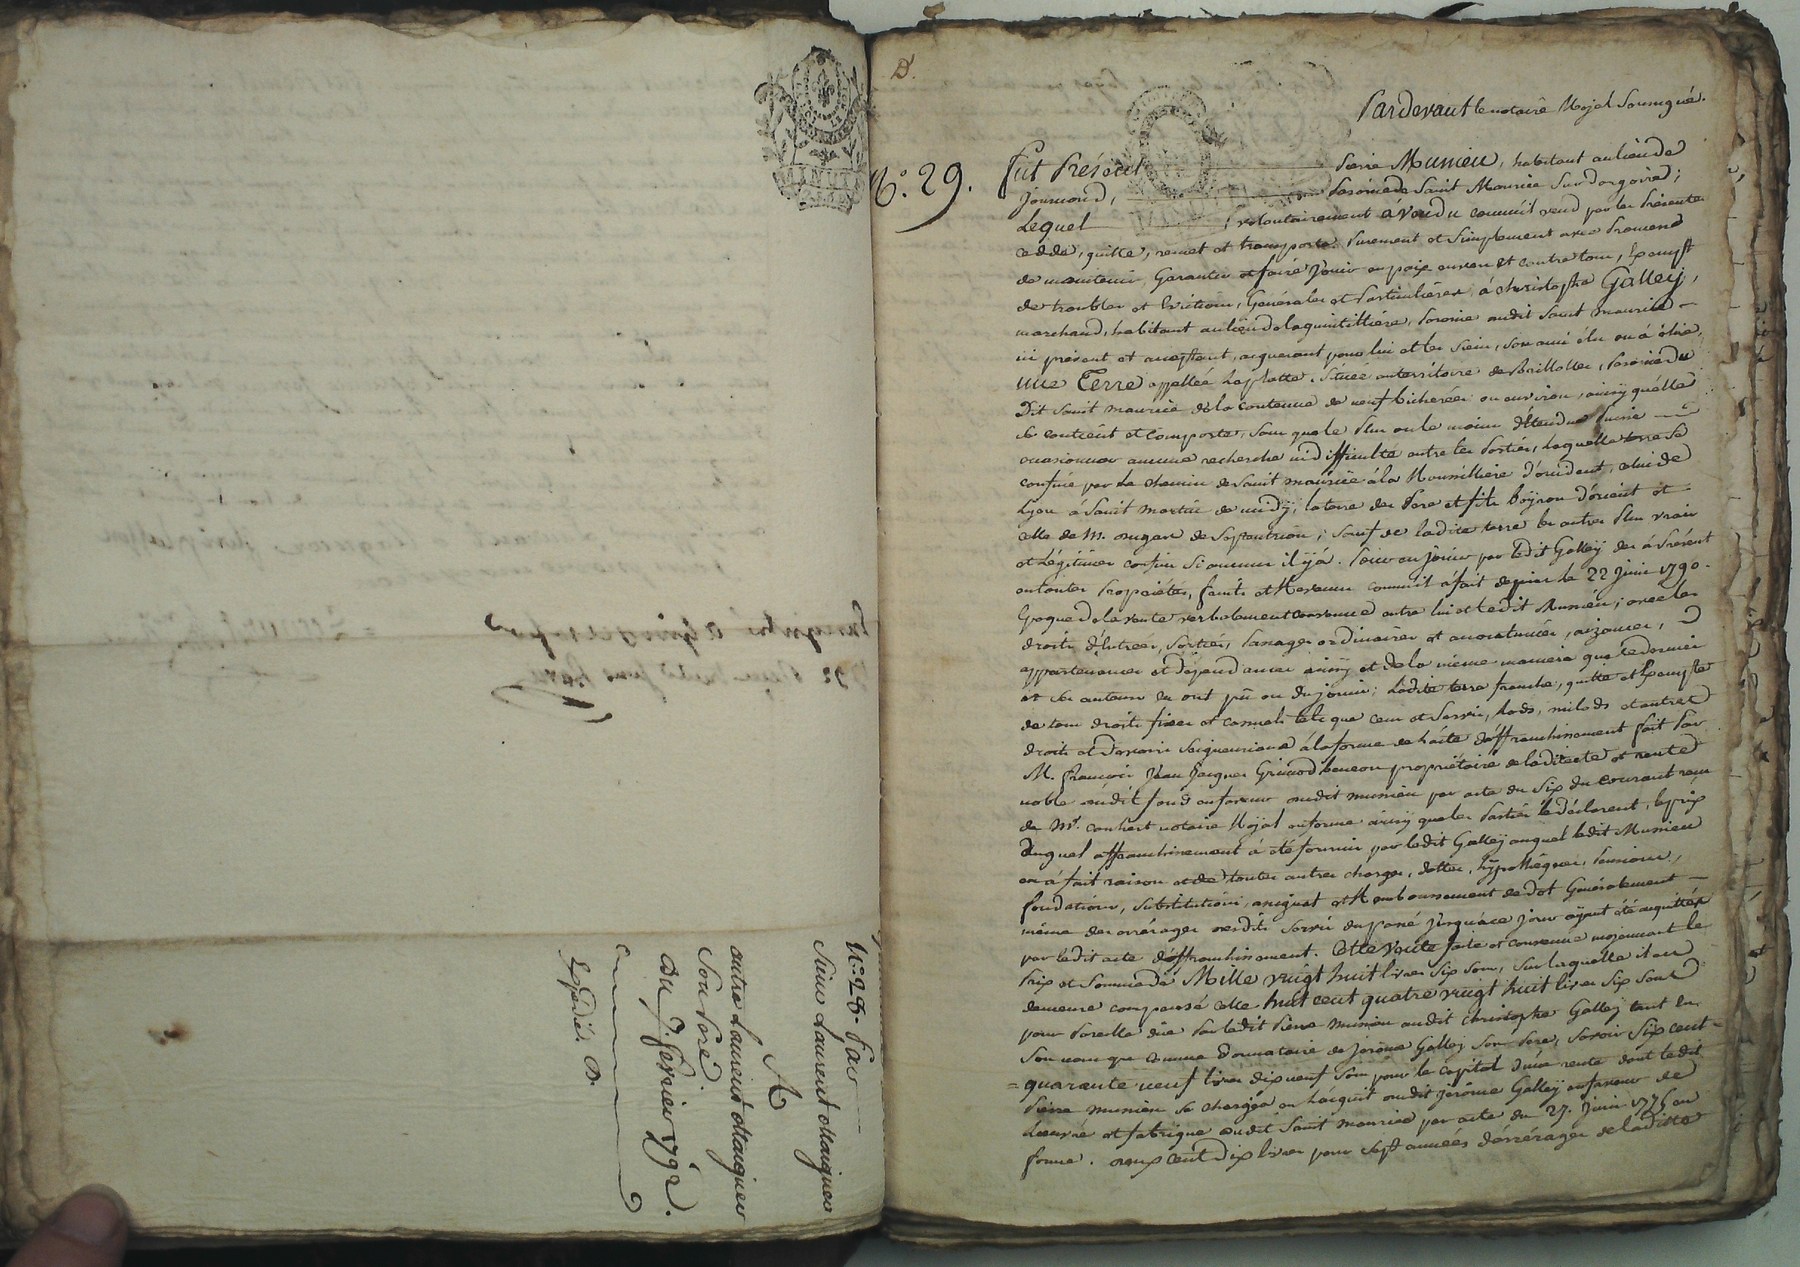 N.° 28. Par
Sieur Laurent
A
autre Laurent
Son Pere.
Du Janvier 1792.
Expédié. D.
D.
N.° 29.
Pardevant le notaire Royal Soussigné.
fut Présent Pierre Munieu, habitant au lieu de
Jourmond, Paroisse de Saint Maurice Sur dargoire;
Lequel volontairement à vendu comme il vend par les Présentes
cedde, quitte, remet et transporte, Purement et Simplement avec Promesse
de maintenir, Garantir et faire Jouir en paix envers et contre tous, Exempt
de troubles et Evictions, Générales et Particulières, à christophe Galley,
marchand, habitant au lieu de laquintillière, Paroisse audit Saint maurice
ici présent et acceptant, acquerant pour lui et les Siens, Son ami élu ou à élire,
une Terre appellée Laplatte, Située au territoire de Paroisse du
Dit Saint maurice de la contenue de neuf bicherées ou environ, ainsy quelle
Se contient et Comporte, Sans que le Plus ou le moins d'étendue Puisse
occasionner aucune recherche ni difficulté entre les Parties, laquelle terre Se
confine par Le chemin de Saint maurice à la Roussilliere d'occident, celui de
Lyon à Saint martin de midÿ, la terre des Pere et fils boÿron d'orient et
celle de M. de Septentrion; Sauf de ladite terre les autres Plus vrais
et Légitimes confins Si aucuns il ÿ à. Pour en Jouir par ledit Galleÿ dès à Présent
en toutes Propriétés, fruits et Revenus comme il à fait depuis le 22 Juin 1790.
Epoque de la vente verbalement convenue entre lui et ledit Munieu; avec les
droits d'Entrées, Sorties, Passages ordinaires et accoutumés, aizances,
appartenances et dépendances ainsÿ et de la même maniere que le dernier
et Ses auteurs en ont pû ou du jouir; Ladite terre franche, quitte et Exempte
de tous droits fixes et casuels tels que cens et Servis, Lods, milods et autres
droits et devoirs Seigneuriaux à la forme de l'acte d'affranchissement fait Par
M. françois Jean Jacques Grimod beneon propriétaire de la directe et rente
noble dudit fond en faveur dudit munieu par acte du Six du courant reçu
de M.e notaire Royal en forme ainsy que les Parties le déclarent, le prix
duquel affranchissement à été fourni par ledit Galleÿ auquel ledit Munieu
en à fait raison et de toutes autres charges, dettes, hÿpothèques, Pensions,
fondations, Substitutions, et Remboursement de dot Généralement
même des arrérages desdits Servis du passé Jusqu'à ce jour aÿant été acquittés
par ledit acte d'affranchissement. Cette vente faite et convenue moÿennant le
Prix et Somme de Mille vingt huit livres Six Sous, Sur laquelle il en
demeure compensé celle huit cent quatre vingt huit livres Six Sous
pour Pareille due Par ledit Pierre Munieu audit christophe Galleÿ tant en
Son nom que comme donnataire de Jerôme Galley Son Pere, Savoir Six cent
quarante neuf livres dix neuf Sous pour le capital d'une rente dont ledit
Pierre munieu Se chargea en l'acquit dudit jerôme Galleÿ en faveur de
Loeuvre et fabrique dudit Saint maurice par acte du 27. Juin 1775 en
forme. deux cent dix livres pour Sept années d'arrérages de ladite